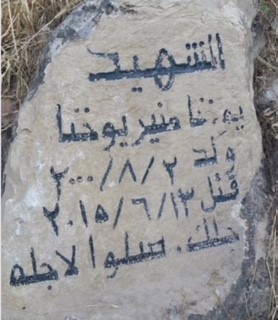 الشهيد
يوحنا منير يوحنا
ولد ٢٠٠٠/٨/٢
قتل ٢٠١٥/٦/١٣
جلك. صلوا لاجله